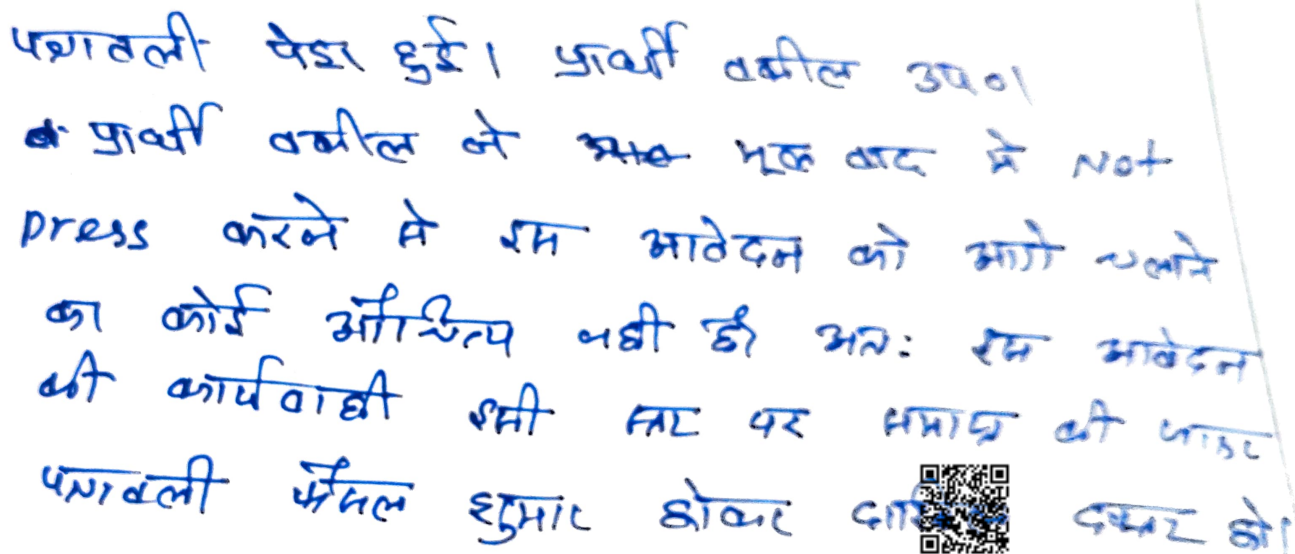 पत्रावली पेश हुई। प्रार्थी वकील उप०।
प्रार्थी वकील ने मूल वाद मे Not
press करने से इस आवेदन को आगे चलाने
का कोई औचित्य नही है। अतः इस आवेदन
की कार्यवाही इसी स्तर पर समाप्त की जाकर
पत्रावली फैसल शुमार होकर दफ्तर हो।